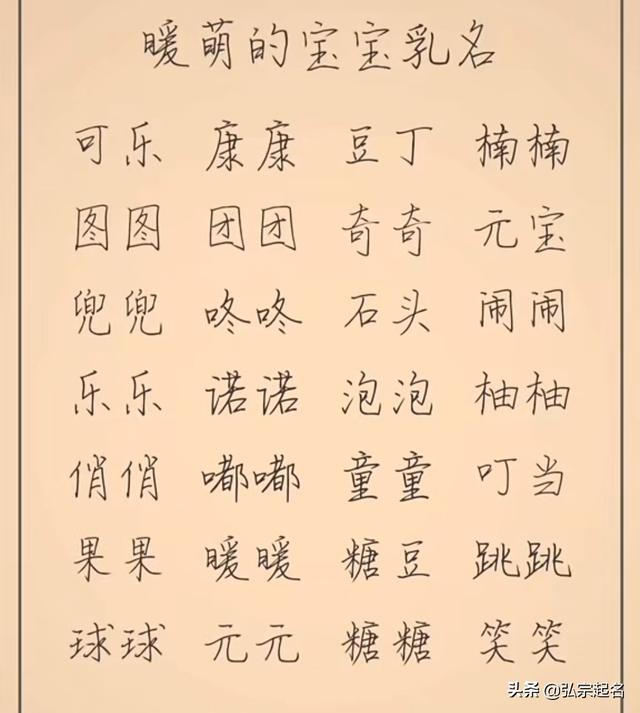 暖萌的宝宝乳名
可乐 康康 豆丁 楠楠
图图 团团 奇奇 元宝
兜兜 咚咚 石头 闹闹
乐乐 诺诺 泡泡 柚柚
俏俏 嘟嘟 童童 叮当
果果 暖暖 糖豆 跳跳
球球 元元 糖糖 笑笑
头条 @弘宗起名